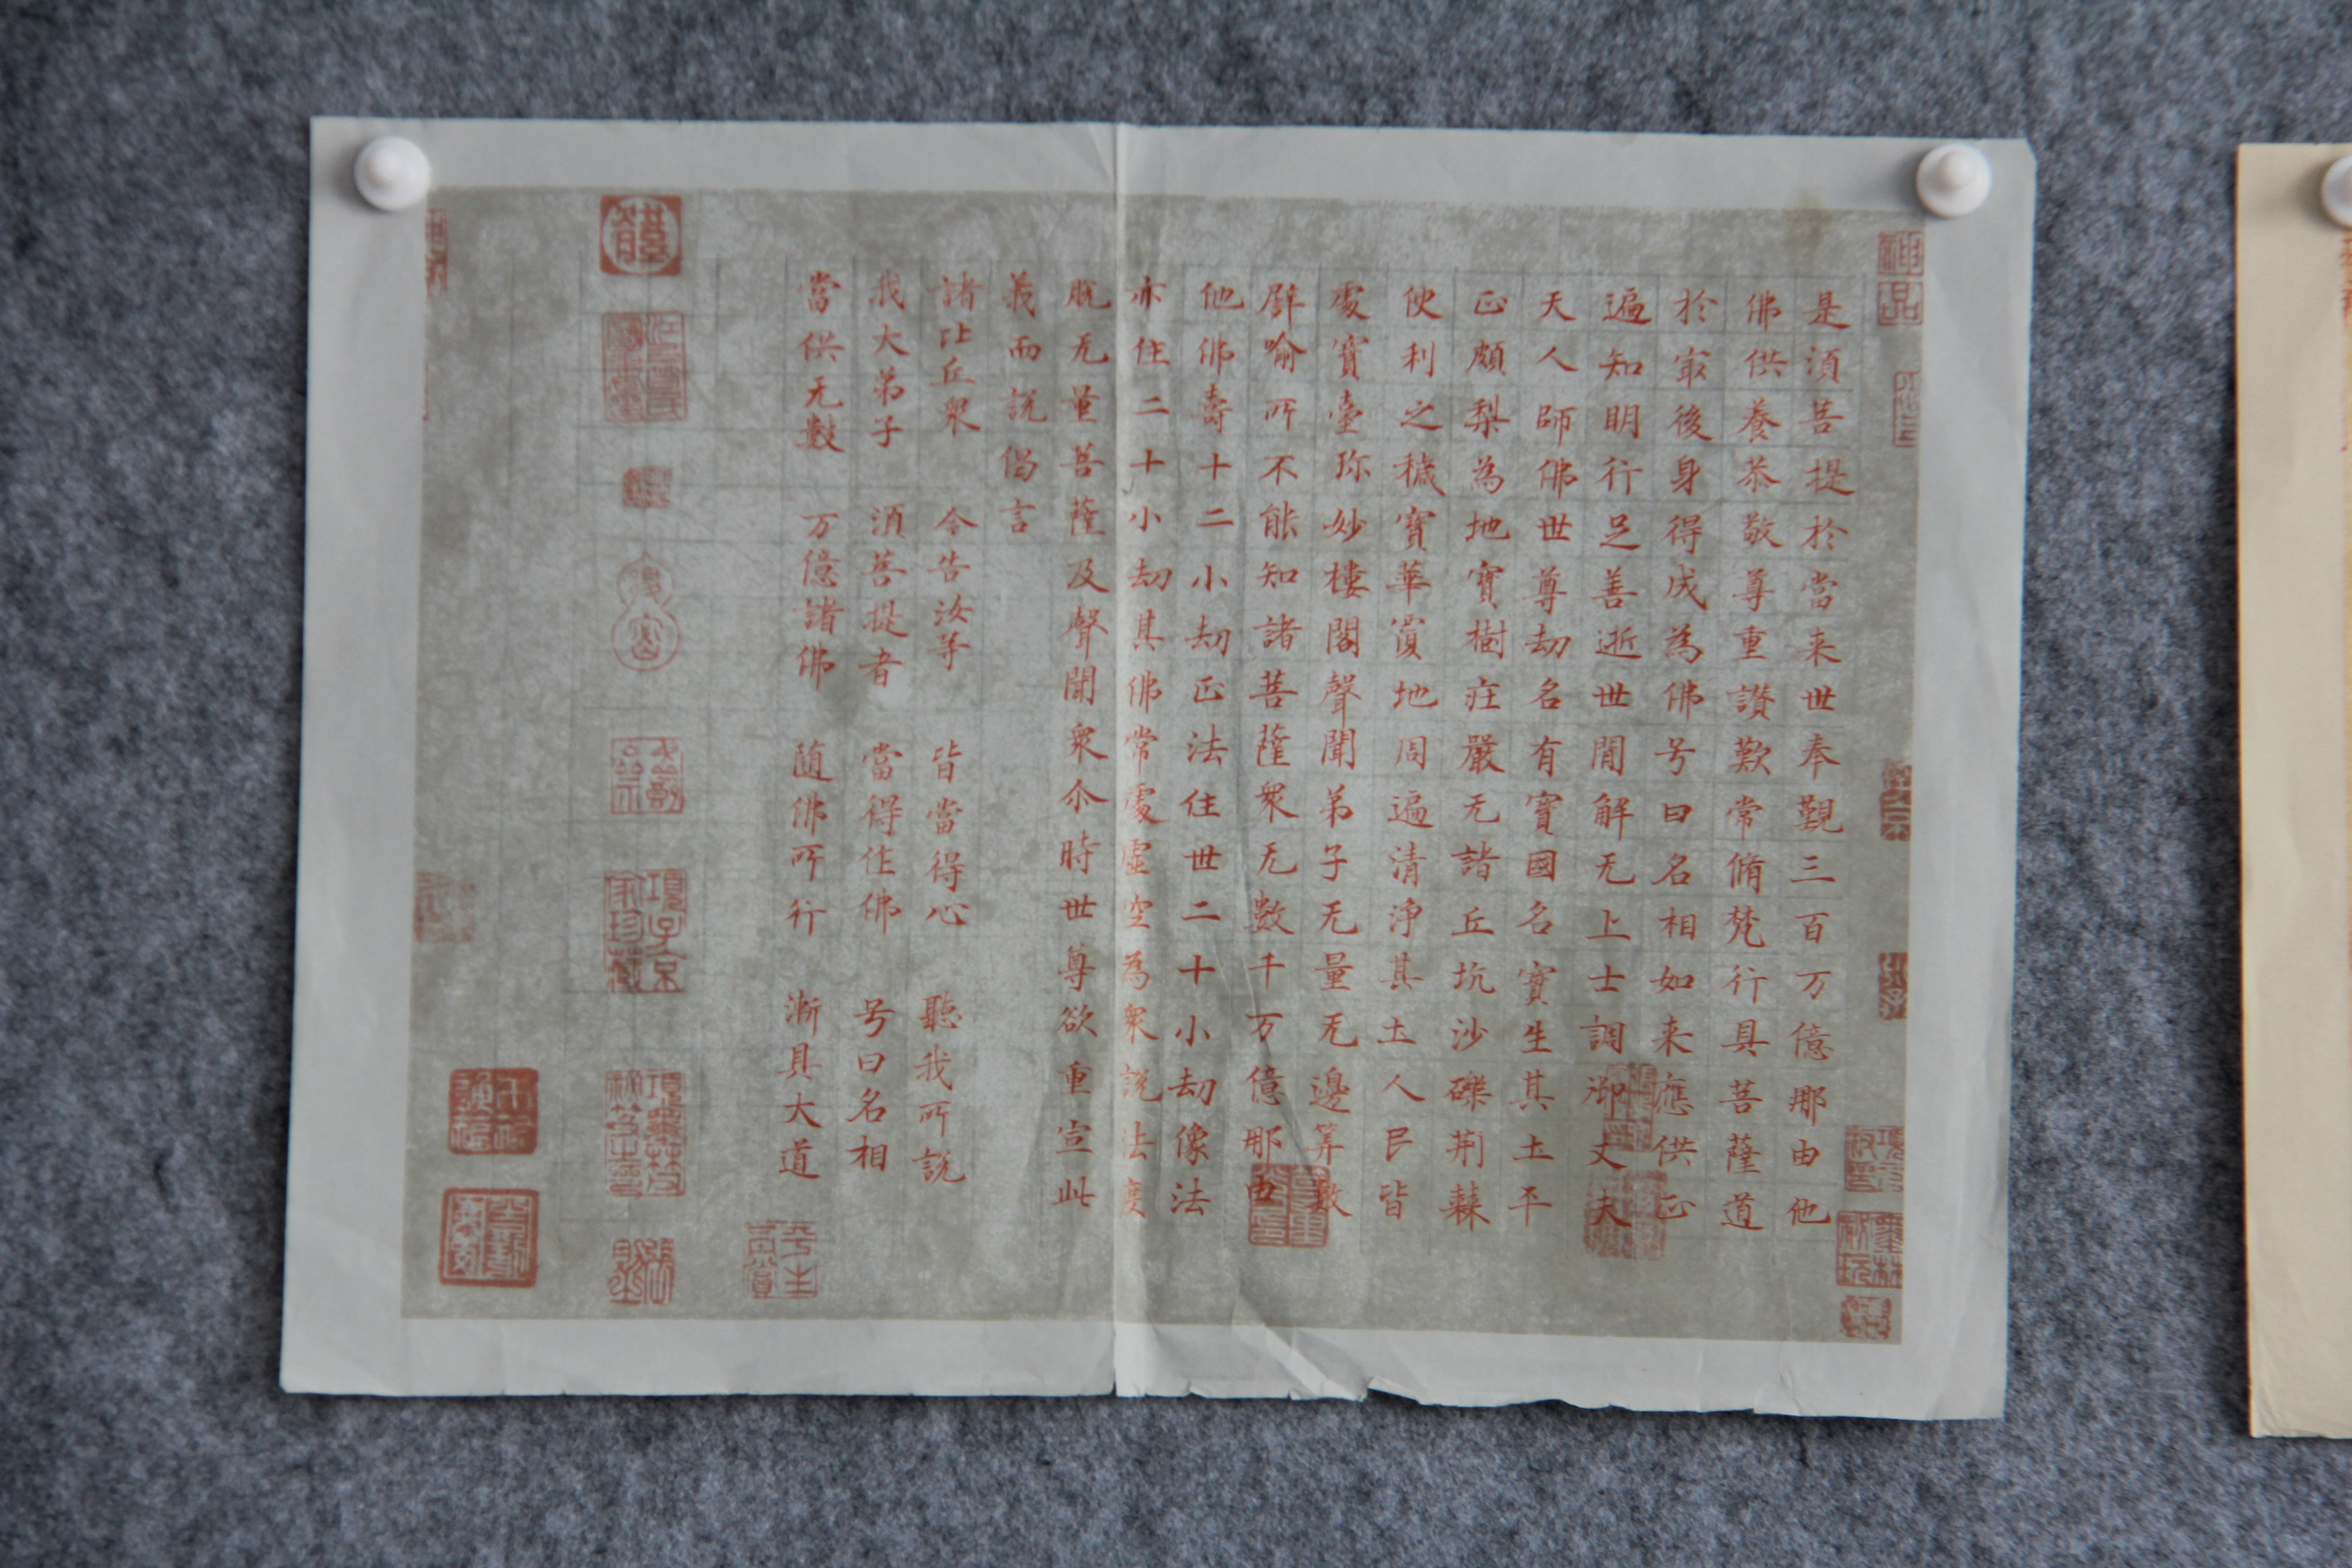 是須菩提於當来世奉觐三百万億那由他
佛供養恭敬尊重讃歎常脩梵行具菩薩道
於冣後身得成為佛号曰名相如来應供正
遍知明行足善逝世間解无上士調御丈夫
天人師佛世尊劫名有寳國名寳生其土平
正頗梨為地寳樹莊嚴无諸丘坑沙礫荆蕀
便利之穢寳華覆地周遍清淨其土人民皆
處寳臺珎妙樓閣聲聞弟子无量无邊筭數
譬喻所不能知諸菩薩衆无數千万億那由
他佛壽十二小劫正法住世二十小劫像法
亦住二十小劫其佛常處虚空為衆說法度
脱无量菩薩及聲聞衆尒時世尊欲重宣此
義而說偈言
諸比丘衆 今告汝等 皆當得心 聽我所說
我大弟子 須菩提者 當得作佛 号曰名相
當供无數 万億諸佛 随佛所行 漸具大道
神品
項子京
家珍藏
平生
真賞